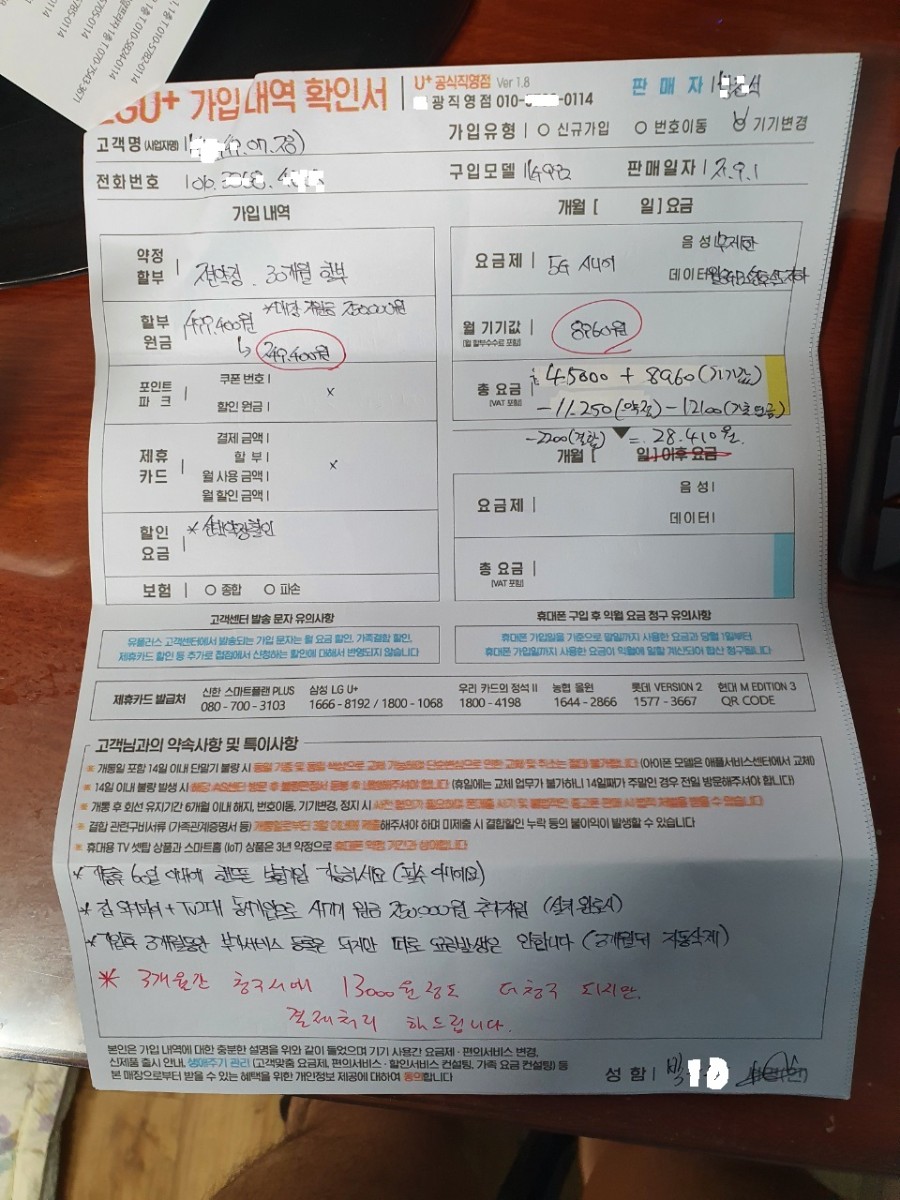 1층 T 010-5782-0114
1층 T 010-5824-0114
1층 T 070-7543-3671
5705-0114
5785-0114
LGU+ 가입내역 확인서
U+ 공식직영점 Ver 1.8
광직영점 010- -0114
판매자
고객명 (사업자명)
07.23)
가입유형 신규가입 번호이동 기기변경
전화번호 010.
구입모델
판매일자 21.9.1
가입 내역
약정 할부
30개월 할부
할부 원금
499.400원
250000원
249.400원
포인트 파크
쿠폰 번호 x
할인 원금
제휴 카드
결제 금액
할 부 x
월 사용 금액
월 할인 금액
할인 요금
* 선택약정할인
보험 종합 파손
개월 [ 일] 요금
요금제 5G 시니어
음성 무제한
데이터
월 기기값 (월 할부수수료 포함)
8960원
총 요금 (VAT 포함)
45000 + 8960 (기기값)
-11.250 (약정) -12100 (기초연금)
-2200 (결합) = 28.410원.
개월 [ 일] 이후 요금
요금제
음성
데이터
총 요금 (VAT 포함)
고객센터 발송 문자 유의사항
유플러스 고객센터에서 발송되는 가입 문자는 월 요금 할인, 가족결합 할인,
제휴카드 할인 등 추가로 접점에서 신청하는 할인에 대해서 반영되지 않습니다
휴대폰 구입 후 익월 요금 청구 유의사항
휴대폰 가입일을 기준으로 말일까지 사용한 요금과 당월 1일부터
휴대폰 가입일까지 사용한 요금이 익월에 일할 계산되어 합산 청구됩니다
제휴카드 발급처
신한 스마트플랜 PLUS
080 - 700 - 3103
삼성 LG U+
1666 - 8192 / 1800 - 1068
우리 카드의 정석 II
1800 - 4198
농협 올원
1644 - 2866
롯데 VERSION 2
1577 - 3667
현대 M EDITION 3
QR CODE
고객님과의 약속사항 및 특이사항
※ 개통일 포함 14일 이내 단말기 불량 시 동일 기종 및 동일 색상으로 교체 가능하며 단순변심으로 인한 교체 및 취소는 절대 불가합니다. (아이폰 모델은 애플서비스센터에서 교체)
※ 14일 이내 불량 발생 시 해당 AS센터 방문 후 불량판정서 동봉 후 내방해주셔야 합니다 (휴일에는 교체 업무가 불가하니 14일째가 주말인 경우 전일 방문해주셔야 합니다)
※ 개통 후 회선 유지기간 6개월 이내 해지, 번호이동, 기기변경, 정지 시 사전 협의가 필요하며
※ 결합 관련구비서류 (가족관계증명서 등) 개통일로부터 3일 이내에 제출해주셔야 하며 미제출 시 결합할인 누락 등의 불이익이 발생할 수 있습니다
※ 휴대용 TV 셋탑 상품과 스마트홈 (IoT) 상품은 3년 약정으로 휴대폰 약정 기간과 상이합니다
* 개통후 60일 이내에 핸드폰 보험가입 가능하세요 (필수 아니에요)
* 집 와이파이 + TV2대 동시가입으로 기기 원금 250,000원 추가지원 (설치 완료시)
* 가입후 3개월동안 부가서비스 등록은 되지만 따로 요금발생은 안합니다 (3개월뒤 자동삭제)
* 3개월간 청구서에 13000원정도 더청구 되지만.
결제처리 해드립니다.
본인은 가입 내역에 대한 충분한 설명을 위와 같이 들었으며 기기 사용기간 요금제 · 편의서비스 변경,
신제품 출시 안내, 생애주기 관리 (고객맞춤 요금제, 편의서비스 · 할인서비스 컨설팅, 가족 요금 컨설팅) 등
본 매장으로부터 받을 수 있는 혜택을 위한 개인정보 제공에 대하여 동의합니다
성함